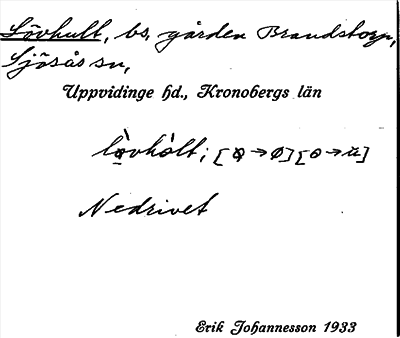 Lövhult, bs, gården Brandstorp,
Sjösås sn,
Uppvidinge hd., Kronobergs län
lø̀vhòlt; [ø → ø] [o → u]
Nedrivet
Erik Johannesson 1933